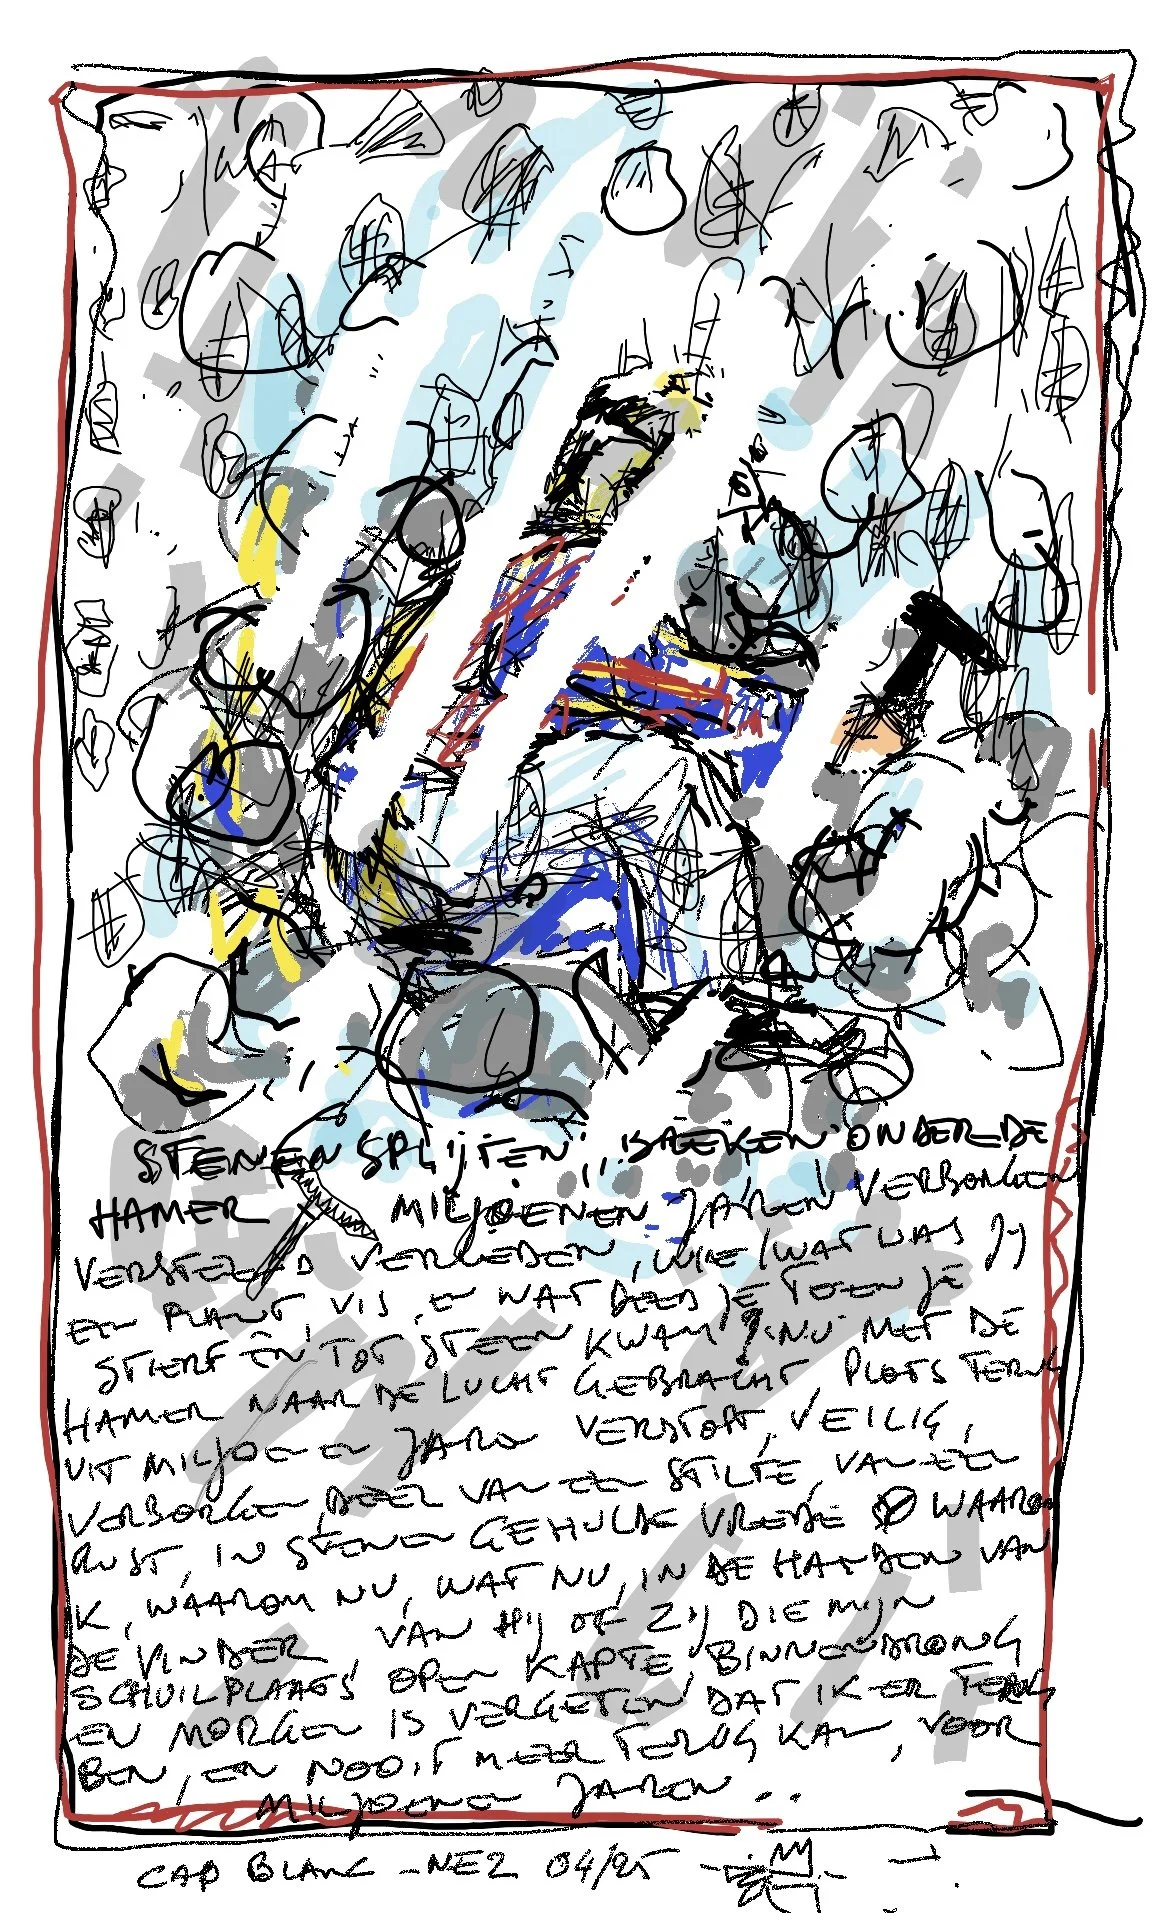 STENEN SPLIJTEN, BREKEN ONDER DE
HAMER MILJOENEN JAREN VERBORGEN
VERSTEEND VERLEDEN, WIE/WAT WAS JY
EEN PLANT VIS, EN WAT DEED JE TOEN JE
STIERF EN TOT STEEN KWAM? NU MET DE
HAMER NAAR DE LUCHT GEBRACHT, PLOTS TERUG
UIT MILJOENEN JAREN VERSTOPT, VEILIG,
VERBORGEN, DEEL VAN EEN STILTE, VAN EEN
RUST, IN STENEN GEHULDE VREDE WAAROM
IK, WAAROM NU, WAT NU, IN DE HANDEN VAN
DE VINDER, VAN HIJ OF ZIJ DIE MIJN
SCHUILPLAATS OPEN KAPTE, BINNENDRONG
EN MORGEN IS VERGETEN DAT IK ER TERUG
BEN, EN NOOIT MEER TERUG KAN, VOOR
MILJOENEN JAREN..
CAP BLANC-NEZ 04/25